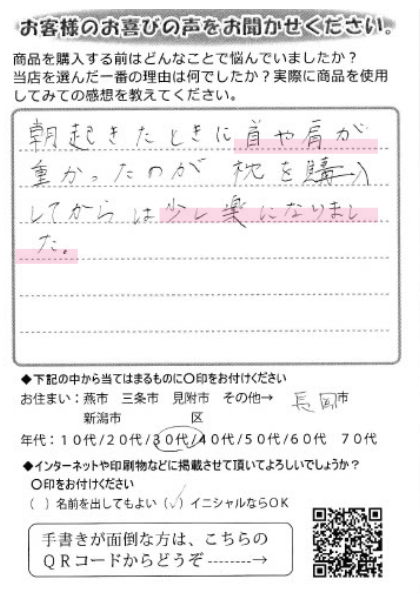 お客様のお喜びの声をお聞かせください。
商品を購入する前はどんなことで悩んでいましたか？
当店を選んだ一番の理由は何でしたか？実際に商品を使用
してみての感想を教えてください。
朝起きたときに首や肩が
重かったのが 枕を購入
してからは少し楽になりまし
た。
◆下記の中から当てはまるものに○印をお付けください
お住まい：燕市 三条市 見附市 その他→ 長岡市
新潟市 区
年代：１０代/２０代/３０代/４０代/５０代/６０代 ７０代
◆インターネットや印刷物などに掲載させて頂いてよろしいでしょうか？
○印をお付けください
（ ）名前を出してもよい（✓）イニシャルならＯＫ
手書きが面倒な方は、こちらの
ＱＲコードからどうぞ--------→